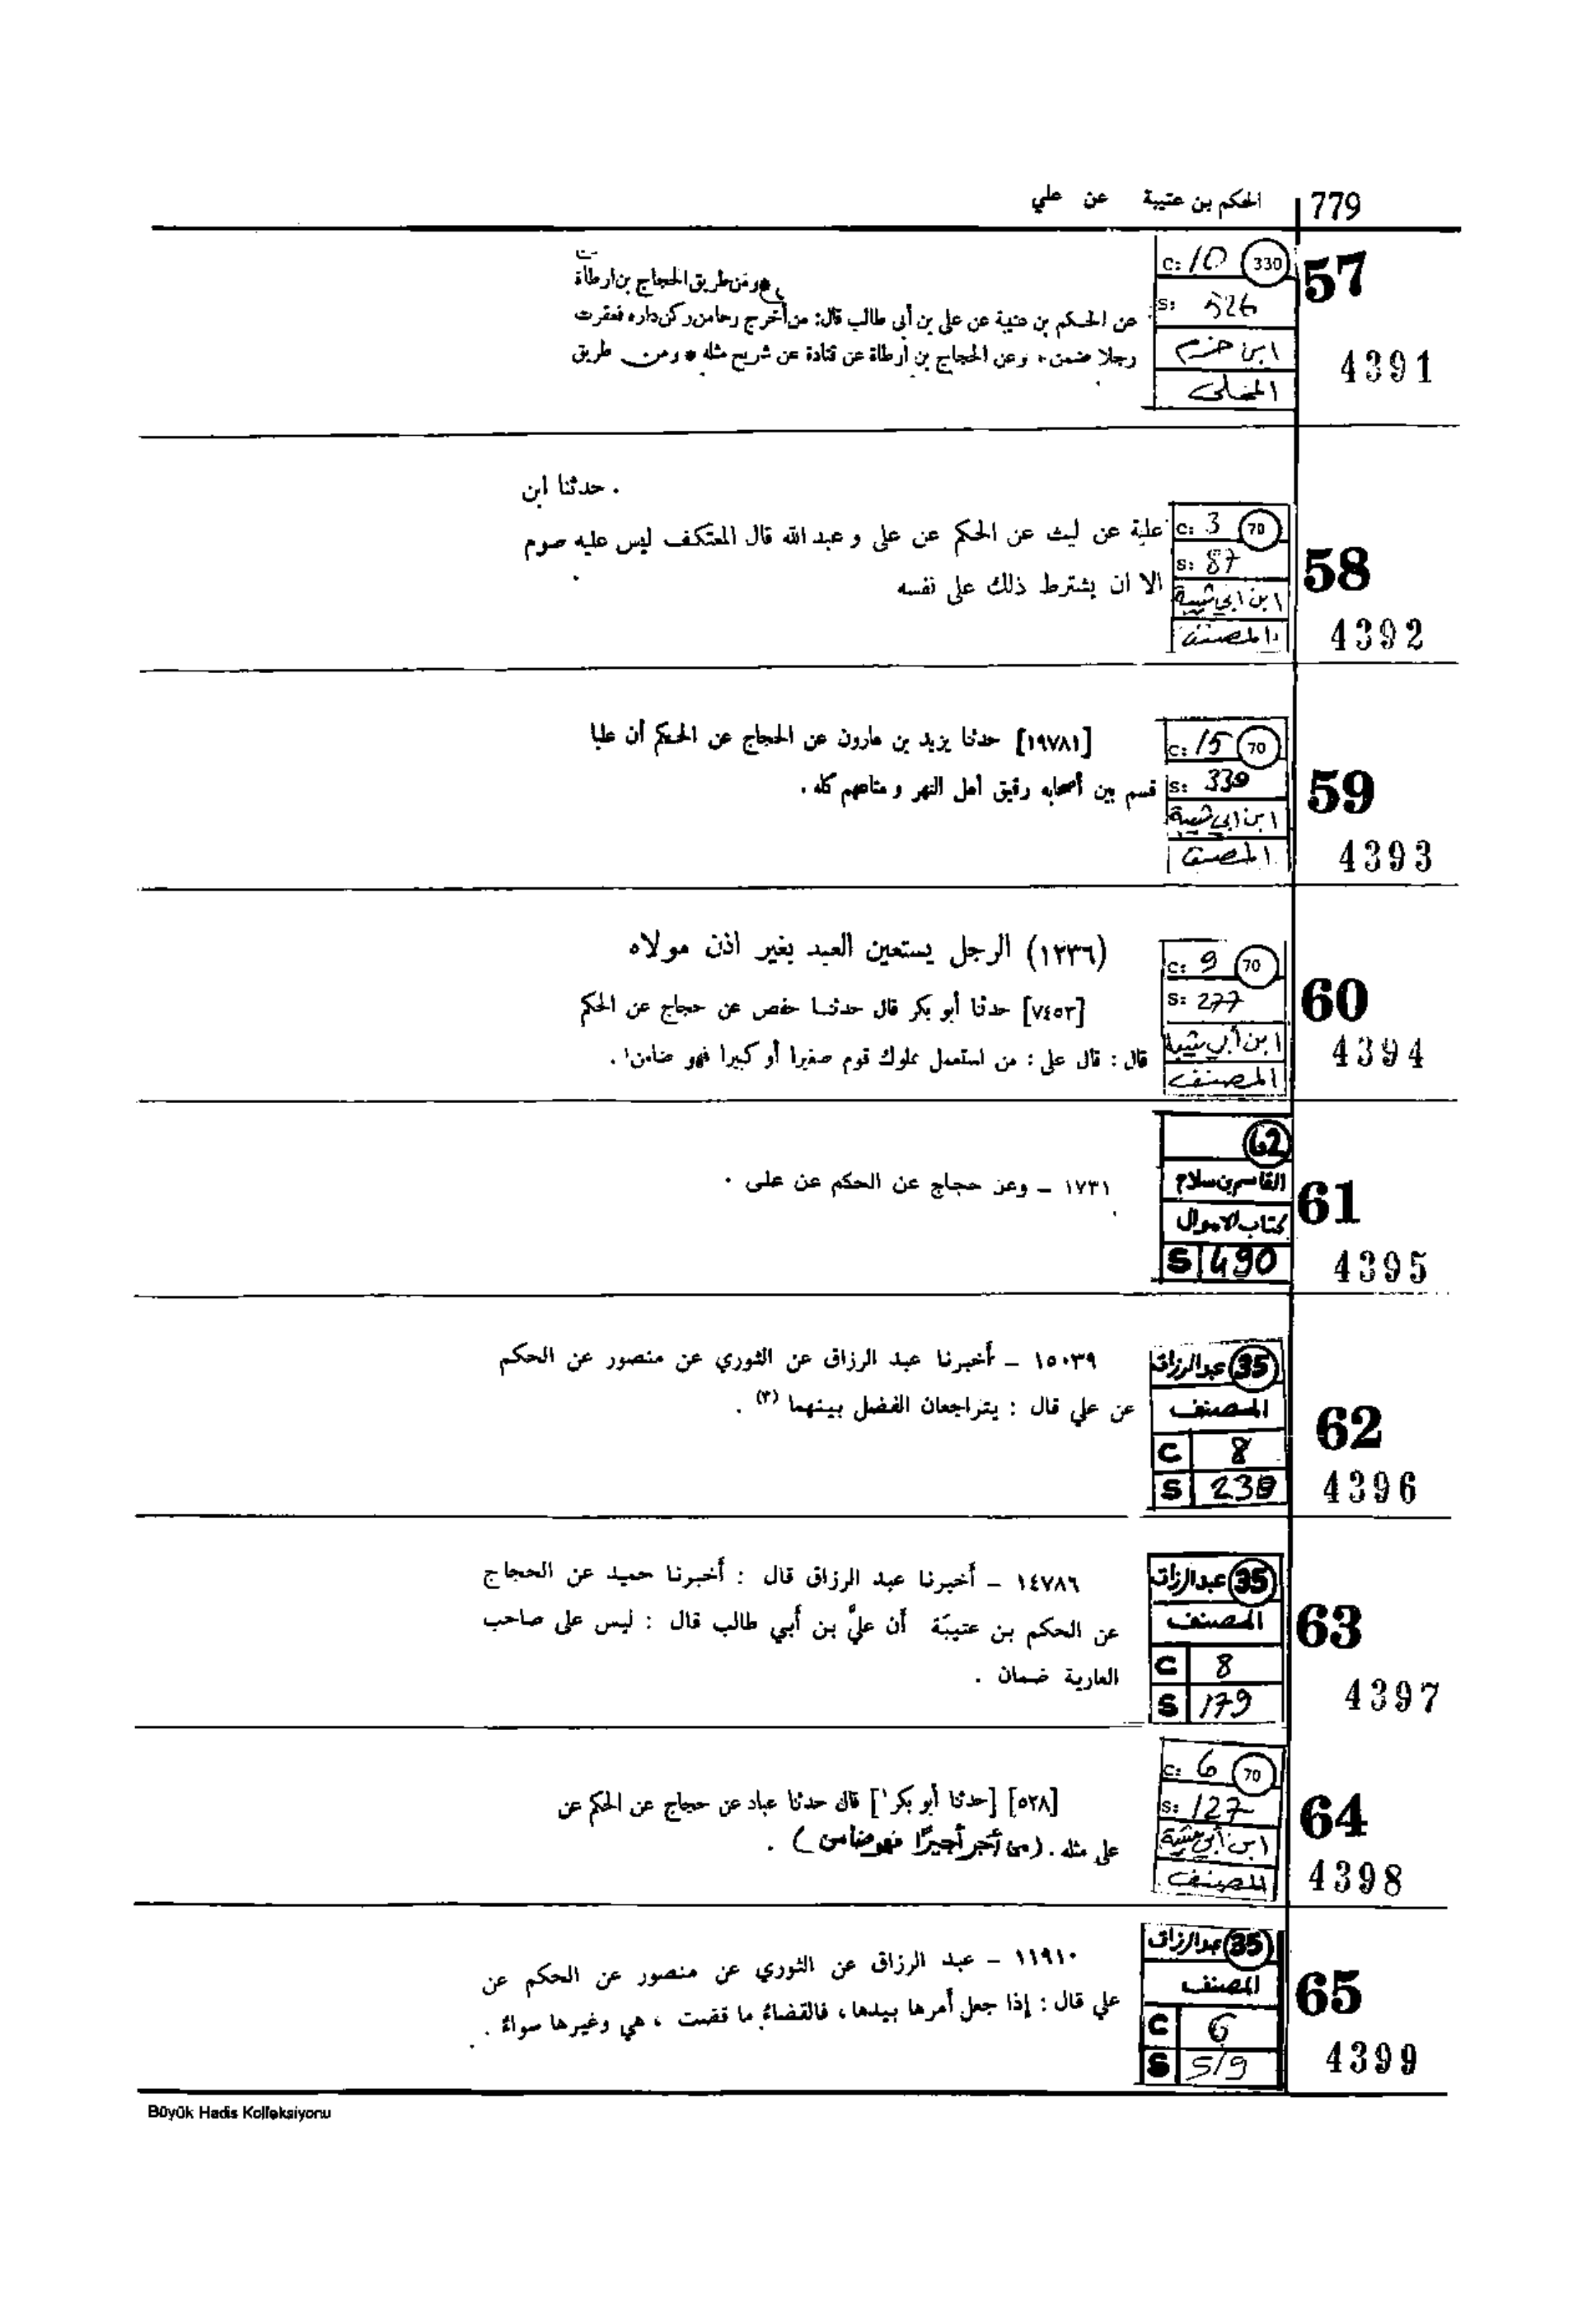 779
الحكم بن عتيبة عن علي
57
4391
C: 10 330
S: 526
ابن حزم
المحلى
ومن طريق الحجاج بن ارطاة
عن الحكم بن عتيبة عن على بن أبى طالب قال: من أخرج رحا من ركن داره فعقرت
رجلا ضمن، وعن الحجاج بن أرطاة عن قتادة عن شريح مثله * ومن طريق
58
4392
C: 3 70
S: 87
ابن ابي شيبة
المصنف
. حدثنا ابن
علية عن ليث عن الحكم عن على و عبد الله قال المعتكف ليس عليه صوم
الا ان يشترط ذلك على نفسه
59
4393
C: 15 70
S: 330
ابن ابي شيبة
المصنف
[١٩٧٨١] حدثنا يزيد بن هارون عن الحجاج عن الحكم أن عليا
قسم بين أصحابه رقيق أهل النهر و متاعهم كله .
60
4394
C: 9 70
S: 277
ابن أبي شيبة
المصنف
(١٢٣٦) الرجل يستعين العبد بغير اذن مولاه
[٧٤٥٣] حدثنا أبو بكر قال حدثنا حفص عن حجاج عن الحكم
قال : قال على : من استعمل مملوك قوم صغيرا أو كبيرا فهو ضامن' .
61
4395
62
القاسم بن سلام
كتاب الاموال
S 490
١٧٣١ – وعن حجاج عن الحكم عن على .
62
4396
35 عبد الرزاق
المصنف
C 8
S
١٥٠٣٩ – أخبرنا عبد الرزاق عن الثوري عن منصور عن الحكم
عن علي قال : يتراجعان الفضل بينهما (٣) .
63
4397
35 عبد الرزاق
المصنف
C 8
S 179
١٤٧٨٦ – أخبرنا عبد الرزاق قال : أخبرنا حميد عن الحجاج
عن الحكم بن عتيبَة أن عليَّ بن أبي طالب قال : ليس على صاحب
العارية ضمان .
64
4398
C: 6 70
S: 127
ابن أبي شيبة
المصنف
[٥٢٨] [حدثنا أبو بكر'] قال حدثنا عباد عن حجاج عن الحكم عن
على مثله . (من أجر أجيرًا فهو ضامن) .
65
4399
35 عبد الرزاق
المصنف
C 6
S 519
١١٩١٠ – عبد الرزاق عن الثوري عن منصور عن الحكم عن
علي قال : إذا جعل أمرها بيدها، فالقضاءُ ما قضت ، هي وغيرها سواءٌ .
Büyük Hadis Kolleksiyonu